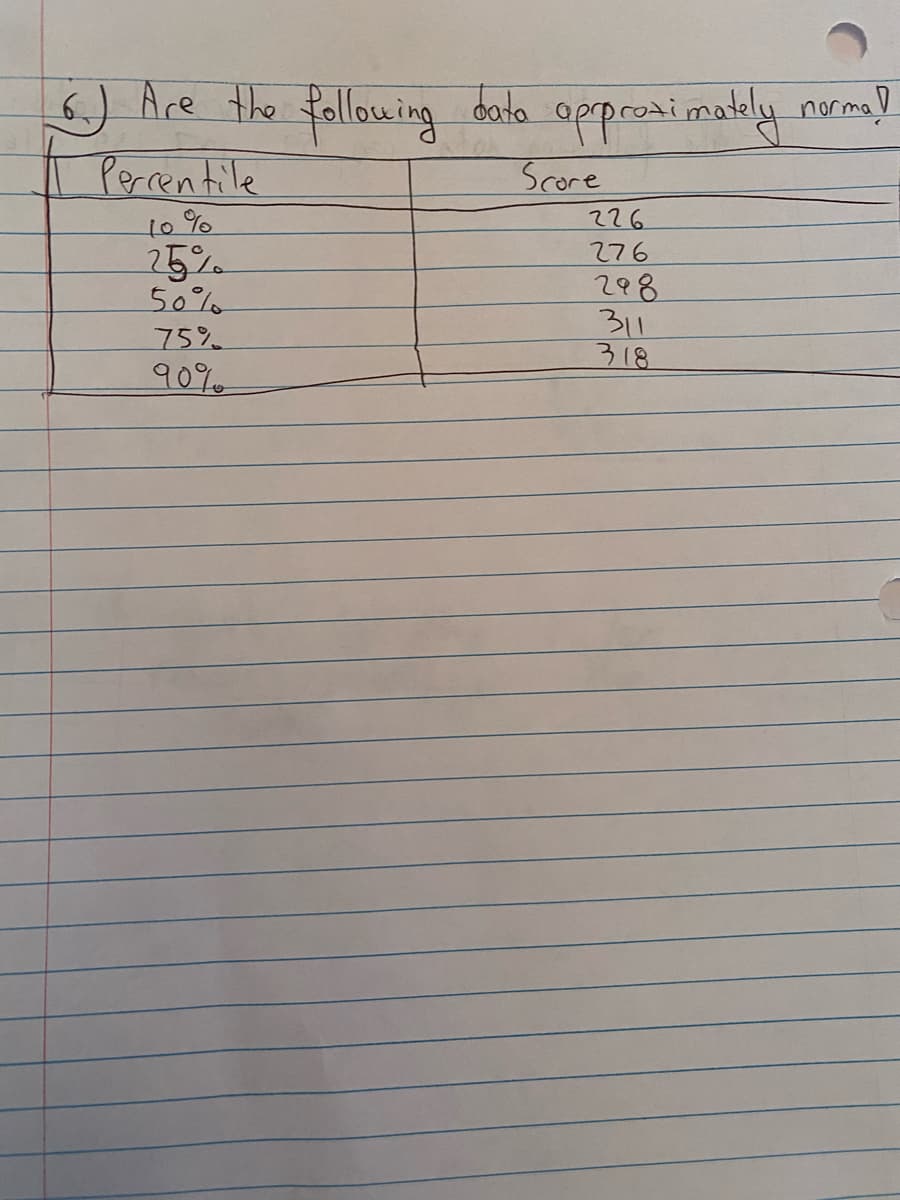 6.) Are the following data aprproximately normal?
Percentile Score
10% 226
25% 276
50% 298
75% 311
90% 318